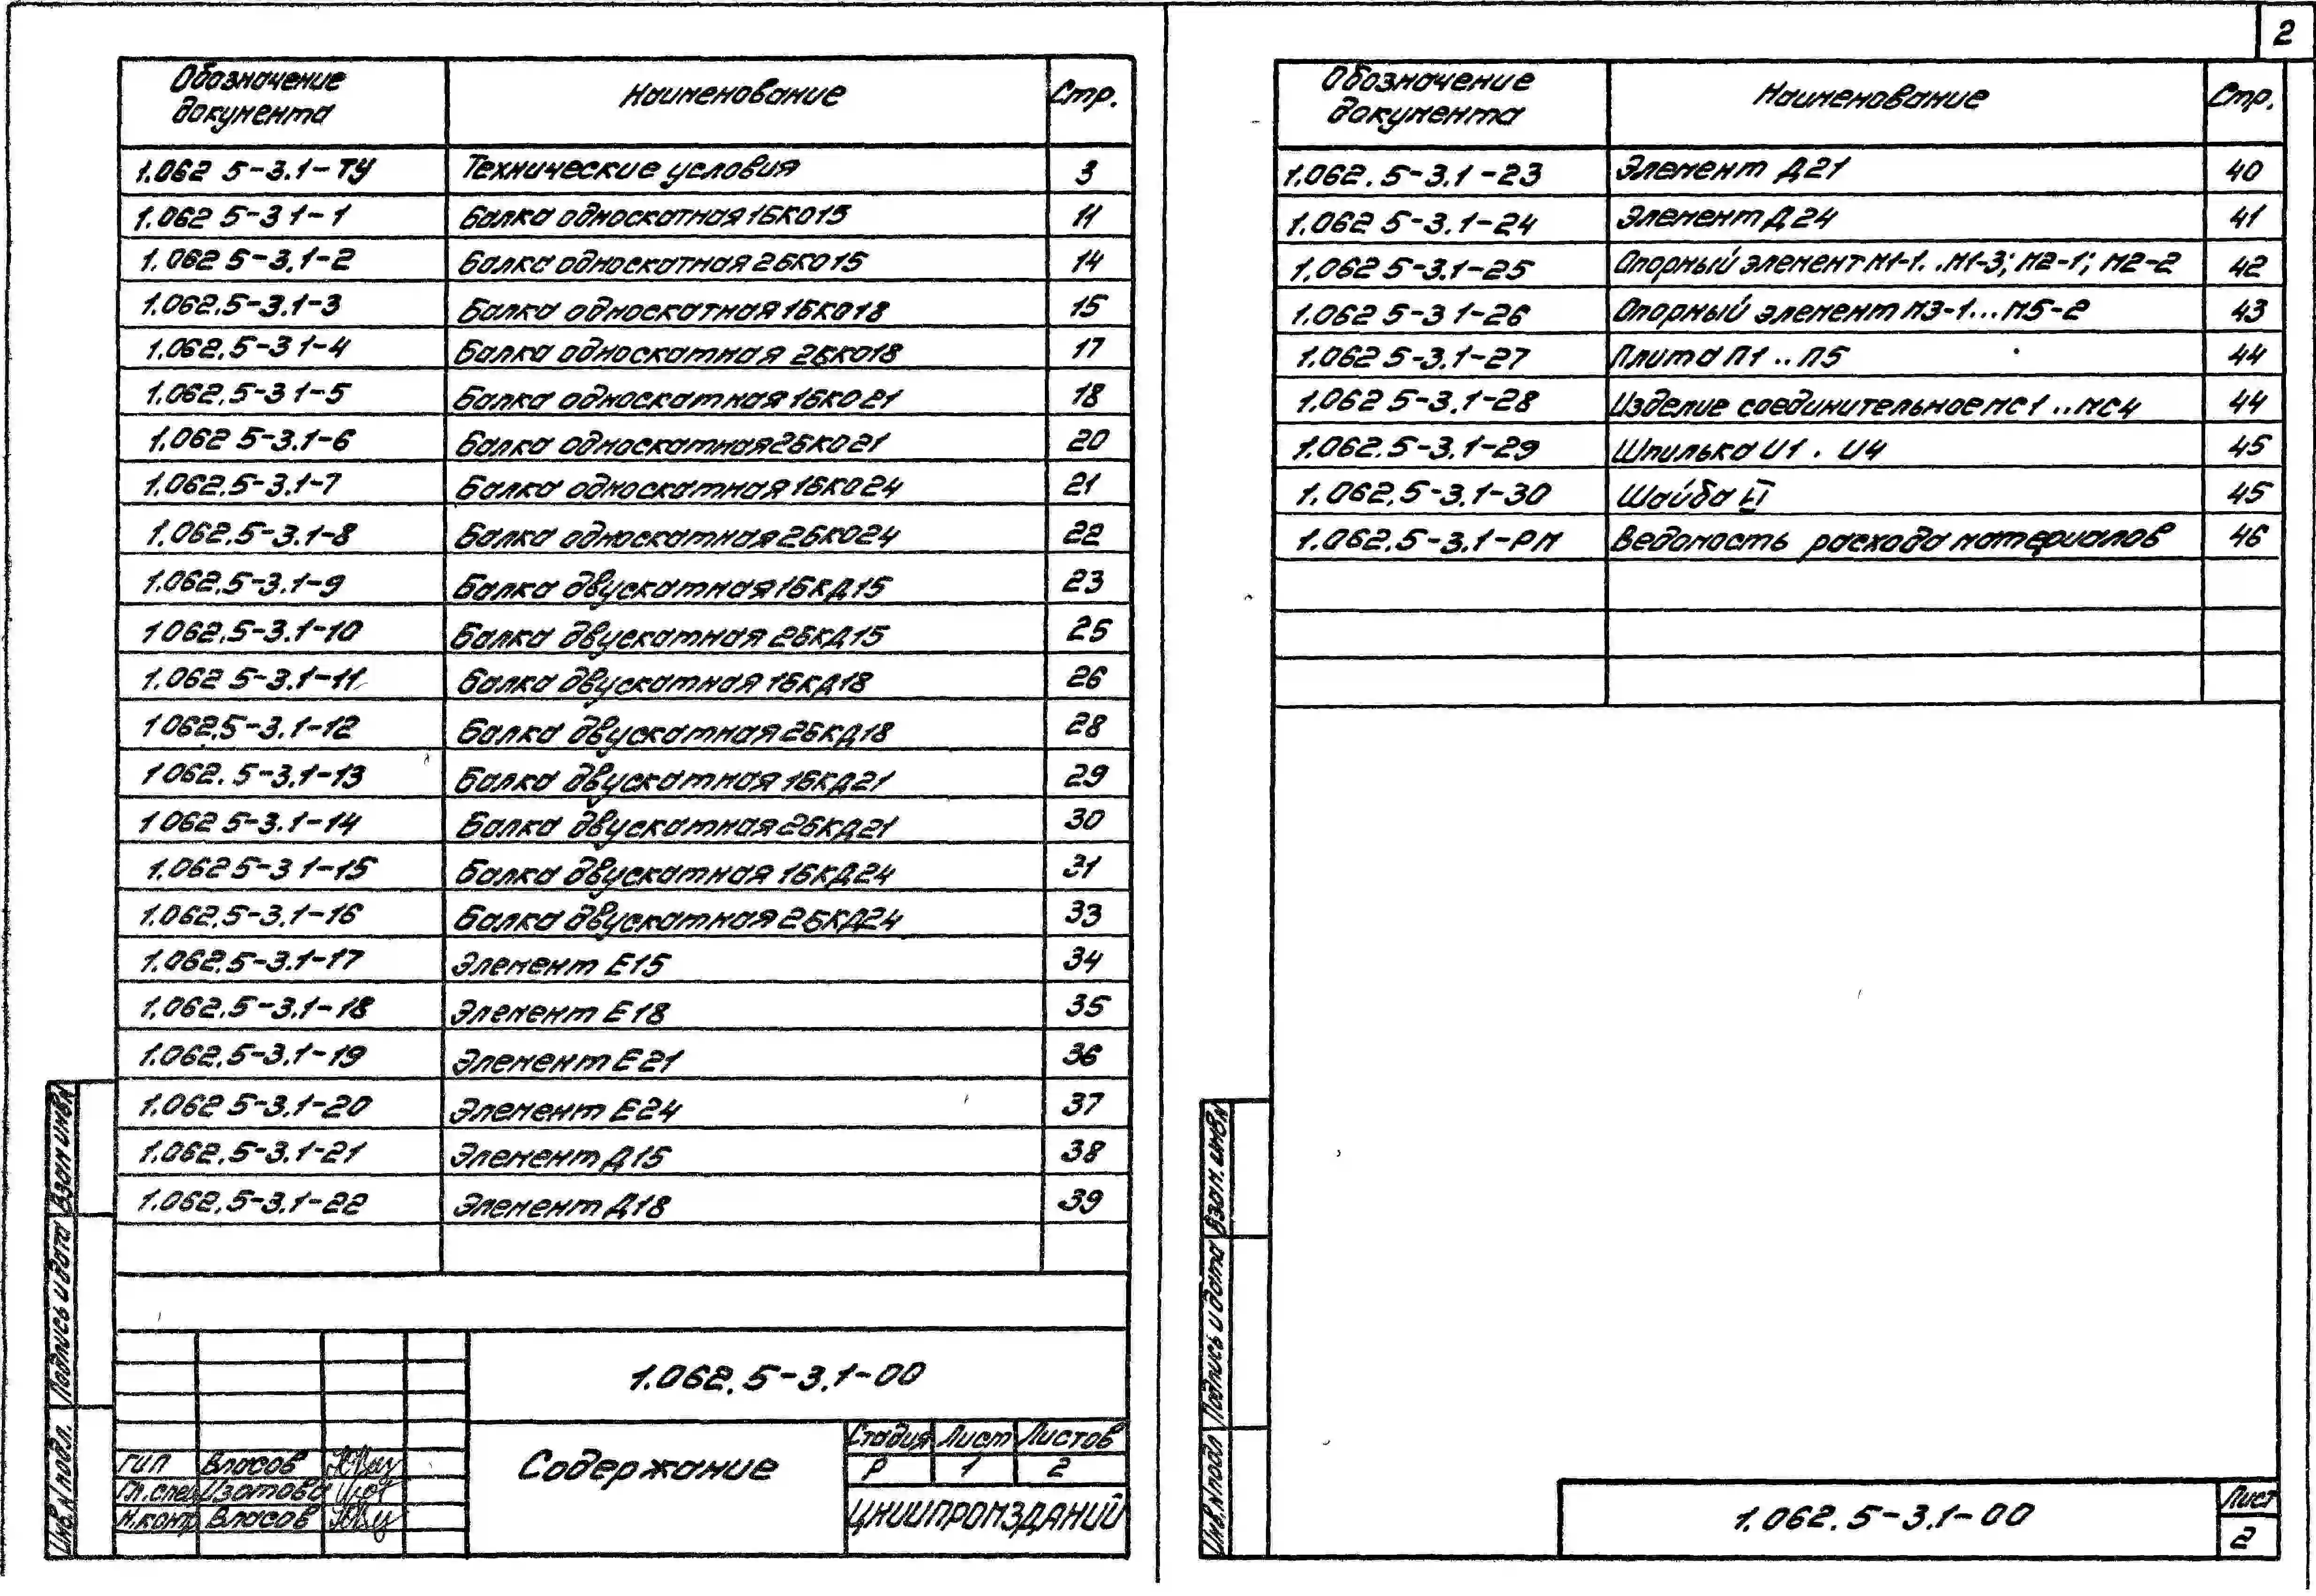 Обозначение документа Наименование Стр.
1.062 5-3.1-ТУ Технические условия 3
1.062 5-3 1-1 Балка односкатная 1БКО15 11
1.062 5-3.1-2 Балка односкатная 2БКО15 14
1.062.5-3.1-3 Балка односкатная 1БКО18 15
1.062.5-3 1-4 Балка односкатная 2БКО18 17
1.062.5-3 1-5 Балка односкатная 1БКО21 18
1.062 5-3.1-6 Балка односкатная 2БКО21 20
1.062.5-3.1-7 Балка односкатная 1БКО24 21
1.062.5-3.1-8 Балка односкатная 2БКО24 22
1.062.5-3.1-9 Балка двускатная 1БКД15 23
1 062.5-3.1-10 Балка двускатная 2БКД15 25
1.062 5-3.1-11 Балка двускатная 1БКД18 26
1 062.5-3.1-12 Балка двускатная 2БКД18 28
1 062.5-3.1-13 Балка двускатная 1БКД21 29
1 062 5-3.1-14 Балка двускатная 2БКД21 30
1.062 5-3 1-15 Балка двускатная 1БКД24 31
1.062.5-3.1-16 Балка двускатная 2БКД24 33
1.062.5-3.1-17 Элемент Е15 34
1.062.5-3.1-18 Элемент Е18 35
1.062.5-3.1-19 Элемент Е21 36
1.062 5-3.1-20 Элемент Е24 37
1.062.5-3.1-21 Элемент Д15 38
1.062.5-3.1-22 Элемент Д18 39
1.062.5-3.1-00
Содержание
Стадия Лист Листов
Р 1 2
ЦНИИПРОМЗДАНИЙ
ГИП Власов
Гл.спец Изотова
Н.контр Власов
Инв.N подл. Подпись и дата Взам инв.N
2
Обозначение документа Наименование Стр.
1.062.5-3.1-23 Элемент Д21 40
1.062 5-3.1-24 Элемент Д24 41
1.062 5-3.1-25 Опорный элемент М1-1..М1-3; М2-1; М2-2 42
1.062 5-3 1-26 Опорный элемент М3-1...М5-2 43
1.062 5-3.1-27 Плита П1 .. П5 44
1.062 5-3.1-28 Изделие соединительное МС1 .. МС4 44
1.062.5-3.1-29 Шпилька Ш1 . Ш4 45
1.062.5-3.1-30 Шайба 45
1.062.5-3.1-РМ Ведомость расхода материалов 46
Инв.N подл Подпись и дата Взам.инв.N
1.062.5-3.1-00
Лист
2